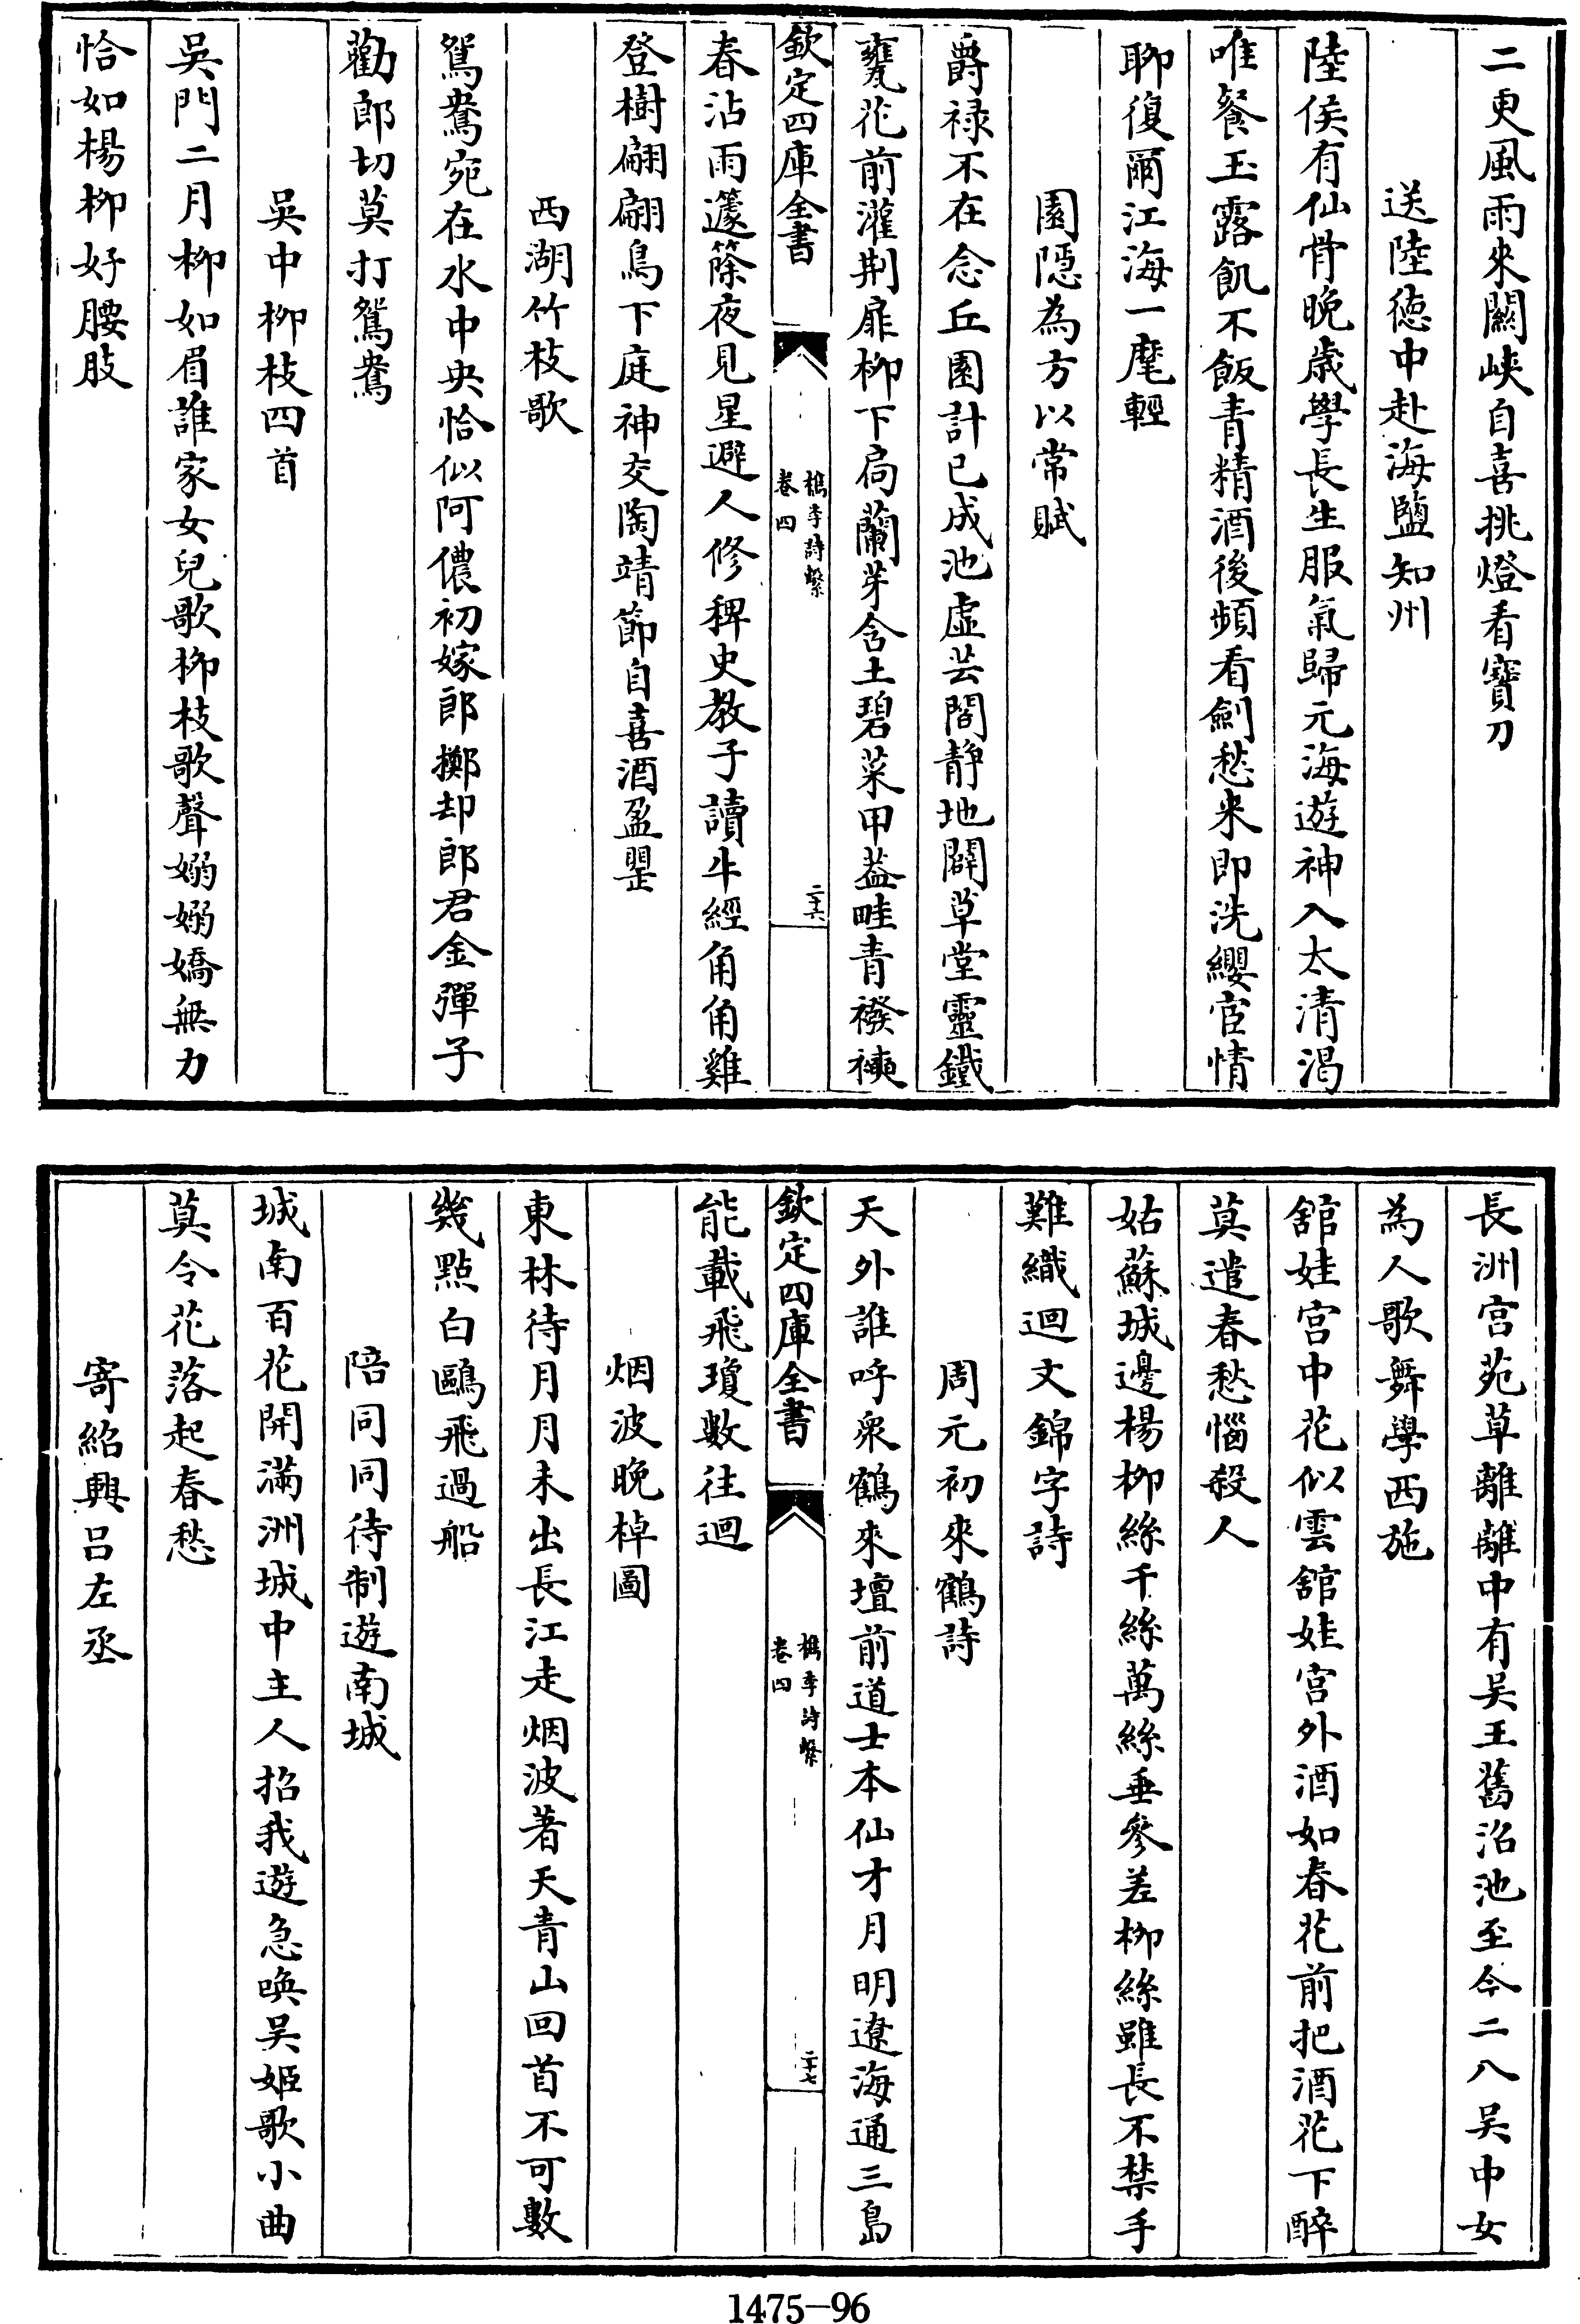 二更風雨來闗峽自喜挑燈看寳刀
送陸徳中赴海鹽知州
陸侯有仙骨晚歲學長生服氣歸元海遊神入太清渇
唯餐玉露飢不飯青精酒後頻看劍愁来即洗纓宦情
聊復爾江海一麾輕
園隠為方以常賦
爵禄不在念丘園計已成池虚芸閣静地闢草堂靈鐵
甕花前灌荆扉栁下扃蘭芽含土碧菜甲益畦青襏襫
欽定四庫全書
檇李詩繫
卷四
二十六
春沾雨籧篨夜見星避人修稗史教子讀牛經角角雞
登樹翩翩鳥下庭神交陶靖節自喜酒盈罂
西湖竹枝歌
鴛鴦宛在水中央恰似阿儂初嫁郎擲却郎君金彈子
勸郎切莫打鴛鴦
吳中栁枝四首
吳門二月栁如眉誰家女兒歌栁枝歌聲嫋嫋嬌無力
恰如楊栁好腰肢
長洲宫苑草離離中有吴王舊沼池至今二八吴中女
為人歌舞學西施
舘娃宫中花似雲舘娃宫外酒如春花前把酒花下醉
莫遣春愁惱殺人
姑蘇城邊楊栁絲千絲萬絲垂參差栁絲雖長不禁手
難織迴文錦字詩
周元初來鶴詩
天外誰呼衆鶴來壇前道士本仙才月明遼海通三島
欽定四庫全書
檇李詩繫
卷四
二十七
能載飛瓊數往迴
烟波晚棹圖
東林待月月未出長江走烟波著天青山回首不可數
幾點白鷗飛過船
陪同同待制遊南城
城南百花開滿洲城中主人招我遊急喚吴姬歌小曲
莫令花落起春愁
寄紹興吕左丞
1475-96